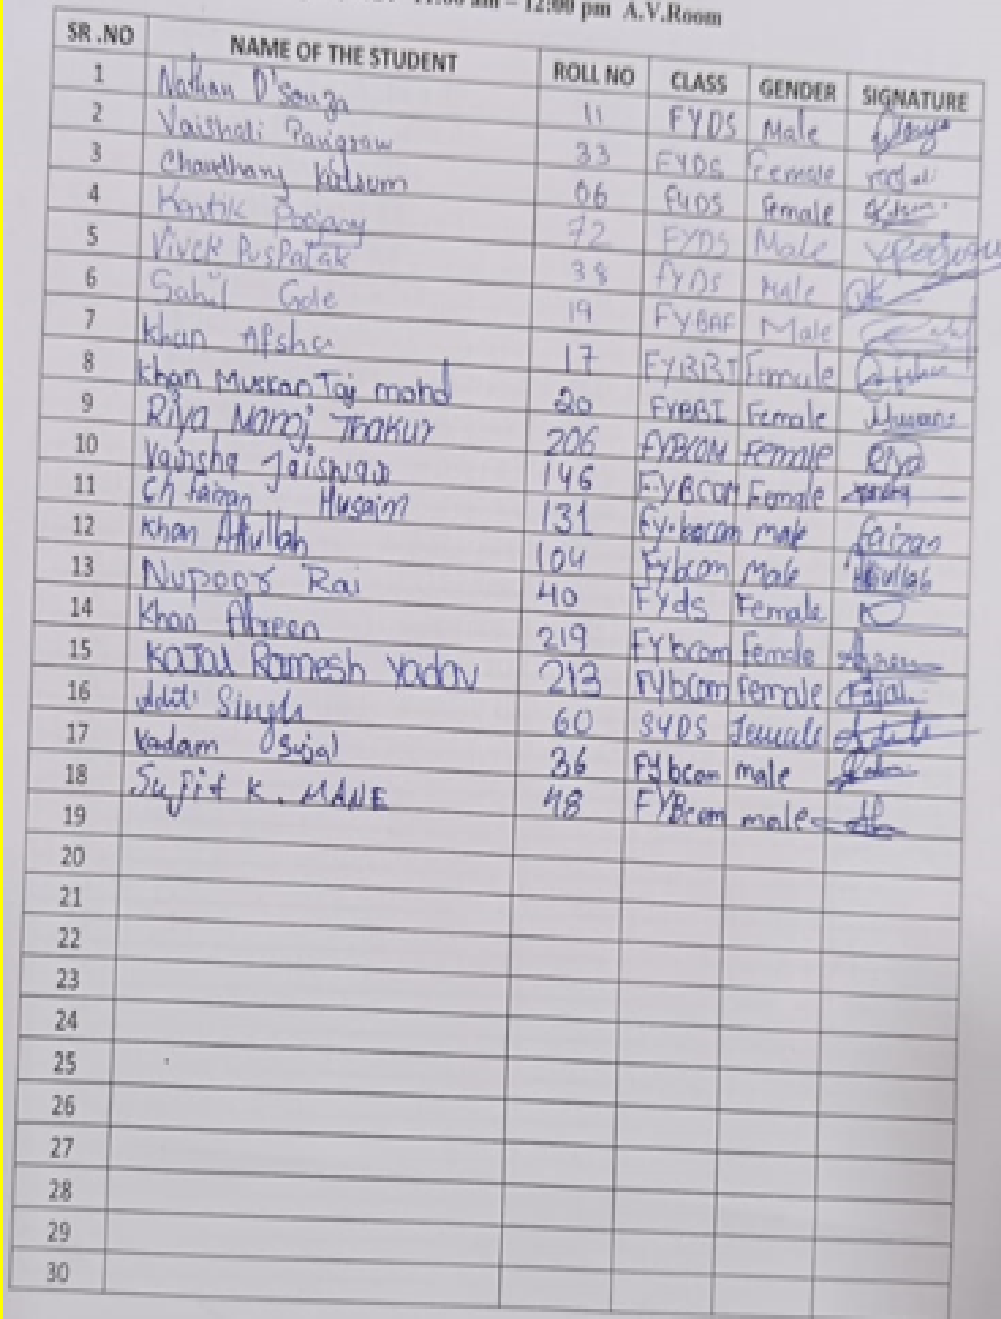 11:00 am – 12:00 pm A.V.Room
SR .NO NAME OF THE STUDENT ROLL NO CLASS GENDER SIGNATURE
1 Nathan D'souza 11 FYDS Male
2 Vaishali Panigraw 33 FYDS Female
3 Chaudhary Kulsum 06 FYDS Female
4 Kartik Poojary 72 FYDS Male
5 Vivek Puspatak 38 FYDS Male
6 Sahil Gole 19 FYBAF Male
7 Khan Afsha 17 FYBBI Female
8 Khan Muskan Taj mohd 20 FYBBI Female Muskan
9 Riya Manoj Thakur 206 FYBCOM Female Riya
10 Jaiswar 146 FYBCOM Female
11 Ch faizan Husain 131 Fy.bacom male faizan
12 Khan Atiullah 104 Fybcom Male Atiullah
13 Nupoor Rai 40 FYds Female
14 Khan Afreen 219 FYbcom Female
15 KAJAL Ramesh Yadav 213 FYbcom Female Kajal
16 Aditi Singh 60 SYDS Female
17 Kadam Sujal 36 FYbcom male
18 Sujit K. MANE 48 FYBcom male
19
20
21
22
23
24
25
26
27
28
29
30